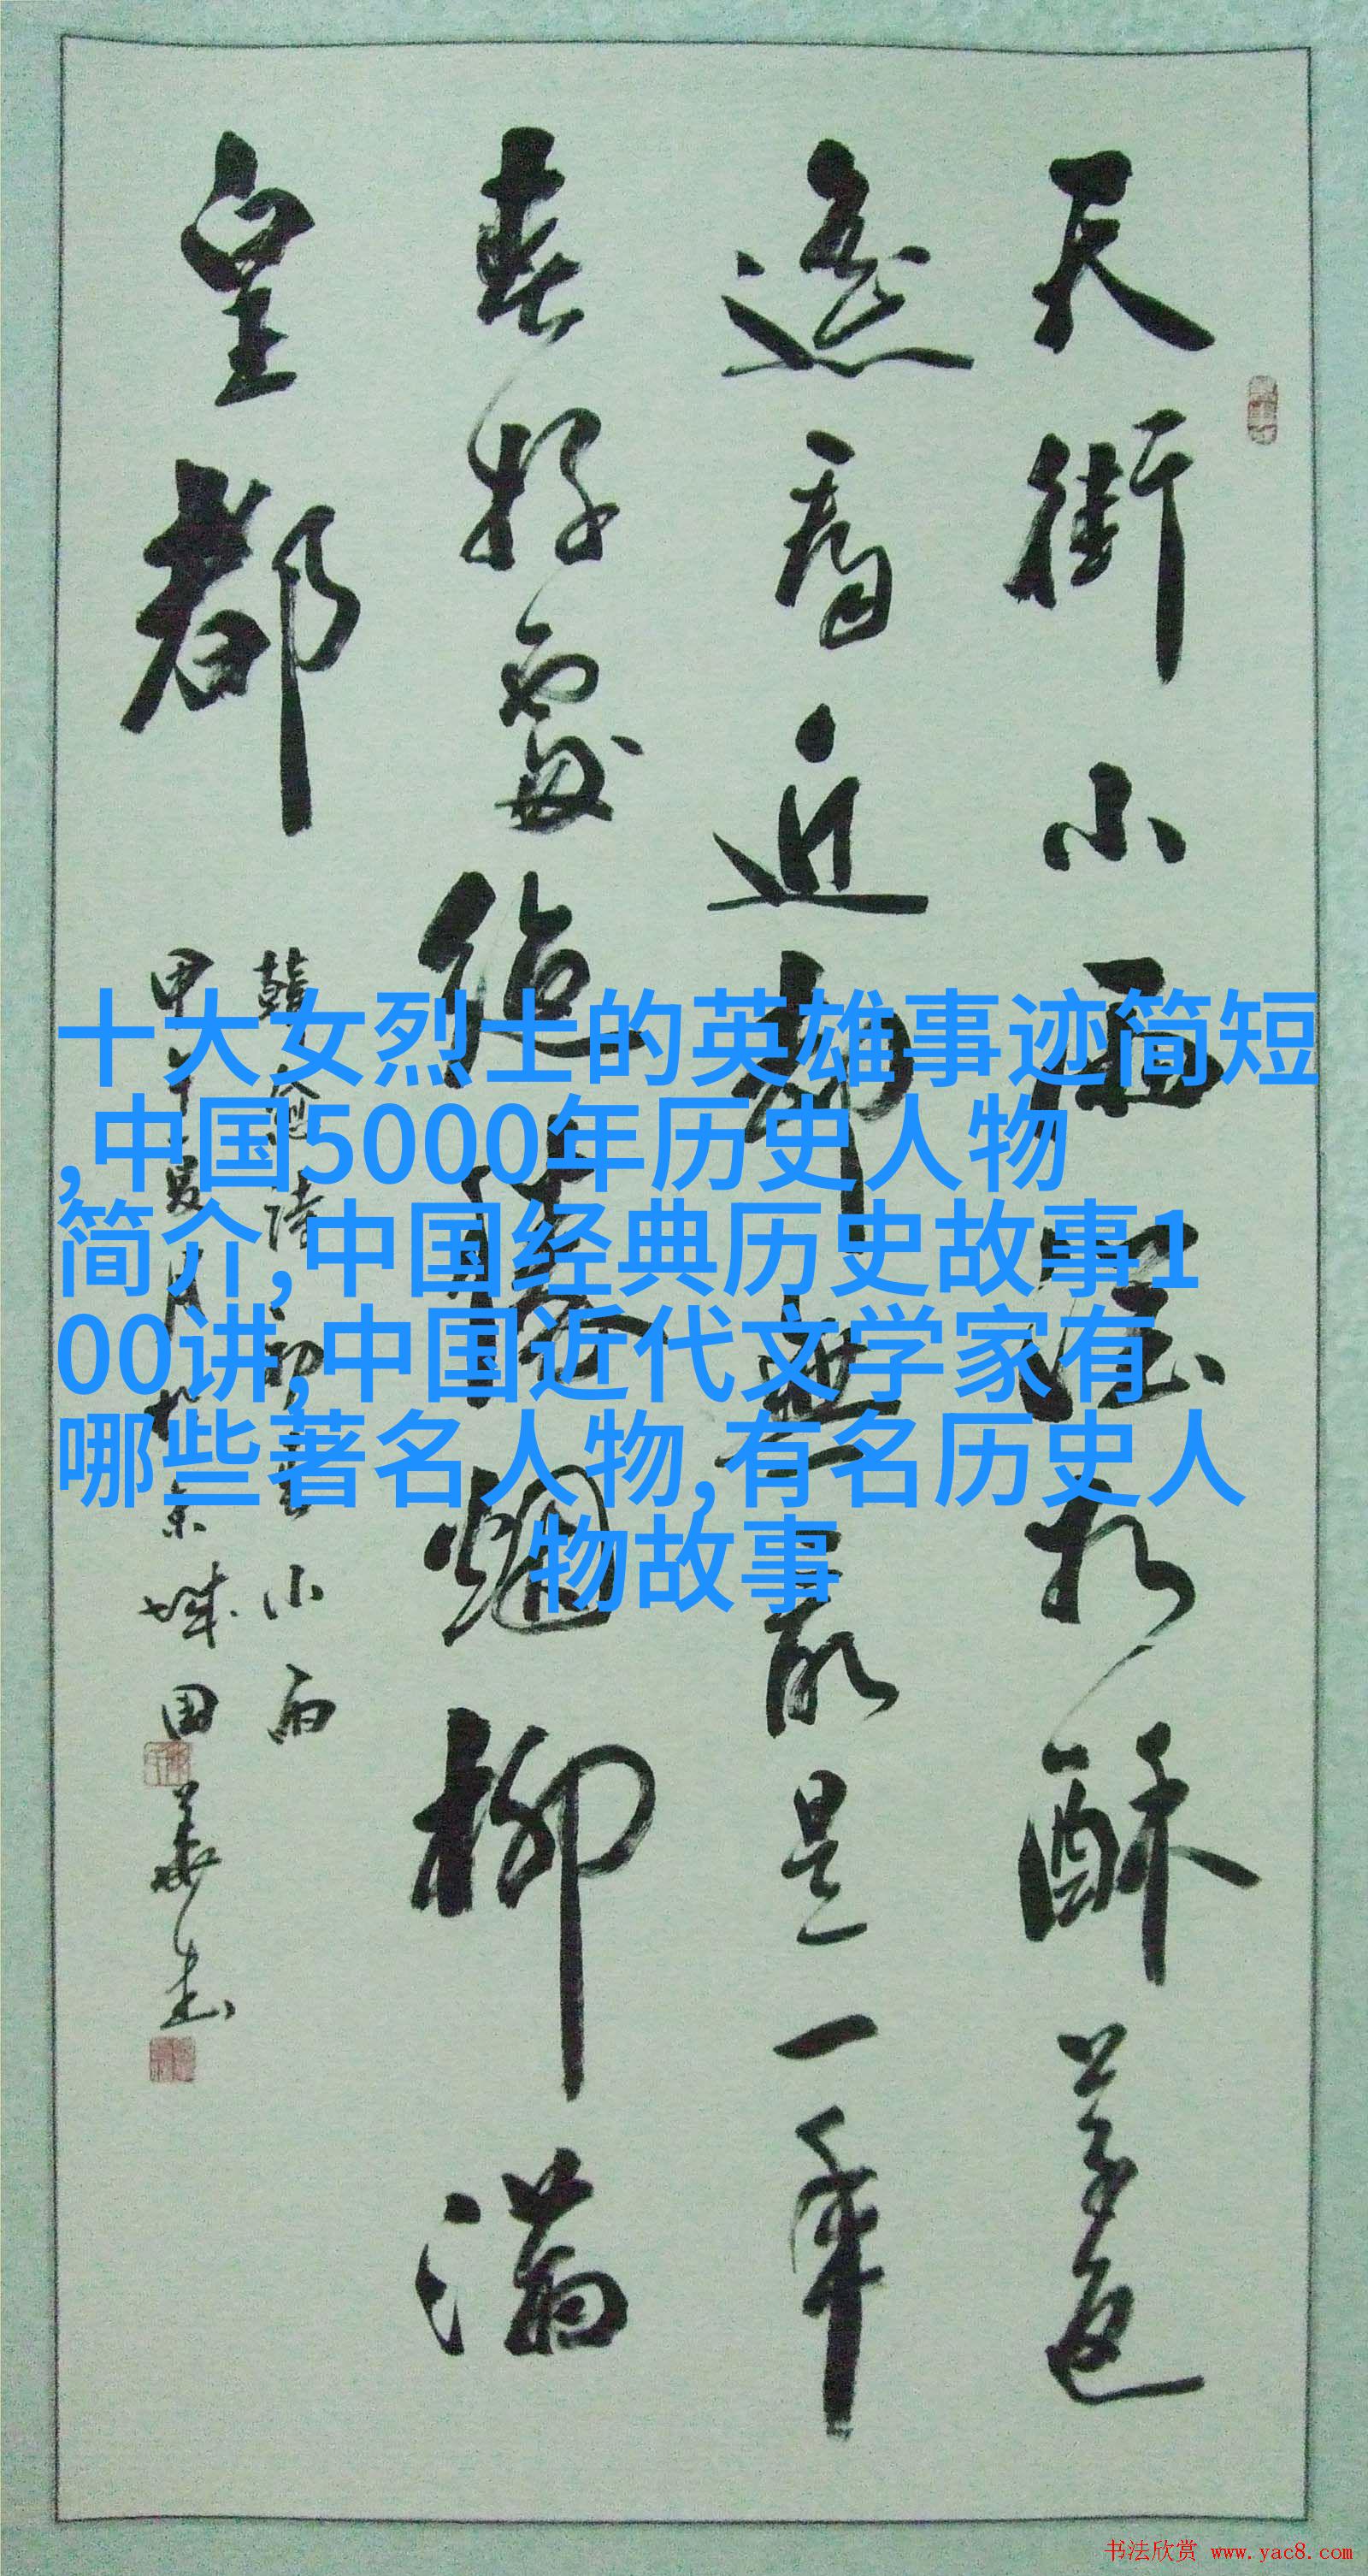 天街小雨润如酥草色
遥看近却無最是一年
春好處绝勝烟柳满
皇都
韓愈詩初春小雨
甲午夏月於京城国華書
十大女烈士的英雄事迹简短
,中国5000年历史人物
简介,中国经典历史故事1
00讲,中国近代文学家有
哪些著名人物,有名历史人
物故事
书法欣赏 www.yac8.com